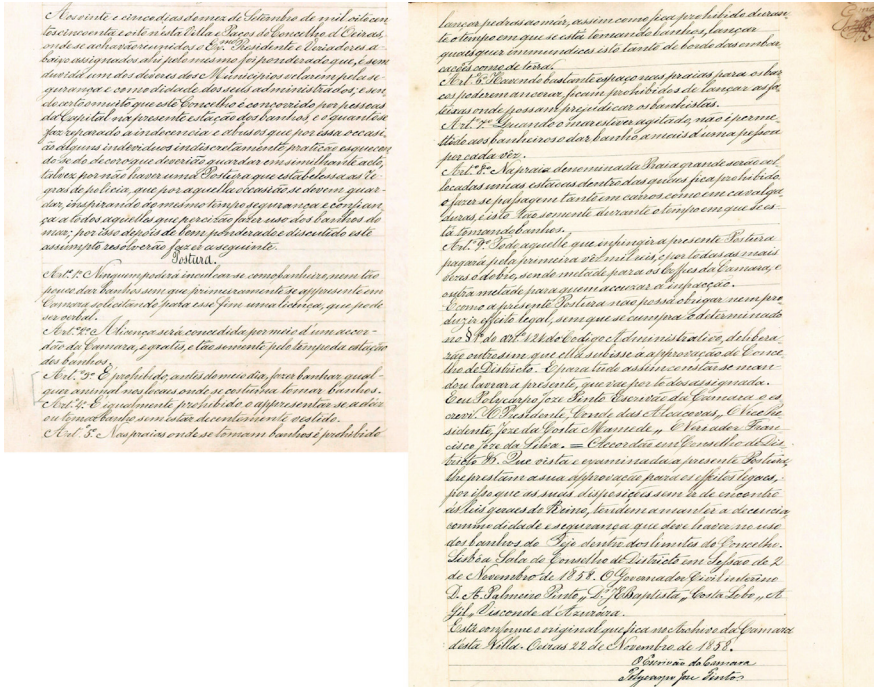 Aos vinte e cinco dias do mez de Setembro de mil oitocen
tos cincoenta e oito nésta Villa e Paços do Concelho d'Oeiras,
onde se achavão reunidos o Exmo. Presidente e Veriadores a-
baixo assignados ahi pelo mesmo foi ponderado que, é sem
duvida um dos deveres dos Municipios velarem pela se-
gurança e comodidade dos seus administrados; e sen-
do certo muito que este Concelho é concorrido por pessoas
da Capital na presente estação dos banhos, e o quanto se
faz reparado a indecencia e abusos que por essa occasi-
ão alguns individuos indiscretamente praticão esquecen
do-se do decoro que deverião guardar em similhante acto,
talvez por não haver uma Postura que estabeleça as re-
gras de policia, que por aquella occasião se devem guar-
dar, inspirando ao mesmo tempo segurança e confian-
ça a todos aquelles que percizão fazer uso dos banhos do
mar; por isso depois de bem ponderado e discutido este
assumpto resolverão fazer a seguinte.
Postura.
Artº 1º Ninguem poderá inculcar-se como banheiro, nem tão
pouco dar banhos sem que primeiro se appresente em
Camara solicitando para esse fim uma licença, que pode
ser verbal.
Artº 2º A licença será concedida por meio d'um accor-
dão da Camara, e gratis, e tão somente pelo tempo da estação
dos banhos.
Artº 3º É prohibido, antes do meio dia, fazer banhar qual-
quer animal nos locaes onde se costuma tomar banhos.
Artº 4º É igualmente prohibido o appresentar-se a dar
ou tomar banho sem estar decentemente vestido.
Artº 5º Nas praias onde se tomam banhos é prohibido
lançar pedras ao már, assim como fica prohibido duran-
te o tempo em que se está tomando banhos, lançar
quaesquer immundices isto tanto de bordo das embar-
cações como de terra.
Artº 6º Havendo bastante espaço nas praias para os bar
cos poderem ancorar, ficam prohibidos de lançar as fa-
teixas onde possam prejudicar os banhistas.
Artº 7º Quando o mar estiver agitado, não é permet-
tido aos banheiros o dar banho a mais d'uma pessoa
por cada vez.
Artº 8º Na praia denominada Praia grande serão col
locadas umas estacas dentro das quaes fica prohibido
o fazer-se passagem tanto em carros como em cavalga-
duras, e isto tão somente durante o tempo em que se es-
tá tomando banhos.
Artº 9º Todo aquelle que infringir a presente Postura
pagará pela primeira vez mil reis, e por todas as mais
vezes o dobro, sendo metade para os Coffres da Camara, e
outra metade para quem accuzar a infracção.
E como a presente Postura não possa obrigar nem pro-
duzir effeito legal, sem que se cumpra o determinado
no § 1º do artº 121 do Codigo Administrativo, delibera
rão outrosim que ella subisse á approvação do Conce-
lho de Districto. E para tudo assim constar se man-
dou lavrar a presente, que vae por todos assignada.
E eu Polycarpo Joze Pinto Escrivão da Camara o es-
crevi. O Presidente, Conde das Alcaçovas, O Vice Pre-
sidente, Joze da Costa Mamede, O Veriador Fran-
cisco Joze da Silva. = Accordão em Conselho de Dis-
tricto &. Que vista e examinada a presente Postura,
lhe prestam a sua approvação para os effeitos legaes,
por isso que as suas disposições sem ir de encontro
ás leis geraes do Reino, tendem a manter a decencia,
commodidade e segurança que deve haver no uso
dos banhos do Tejo dentro dos limites do Concelho.
Lisbôa Sala do Conselho de Districto em Sessão de 2
de Novembro de 1858. O Governador Civil interino
D. A. Palmeiro Pinto, Dr. J. Baptista, Costa Lobo, A
Gil, Visconde d'Azurára.
Está conforme o original que fica no Archivo da Camara
desta Villa. Oeiras 22 de Novembro de 1858.
O Escrivão da Camara
Polycarpo Joze Pinto